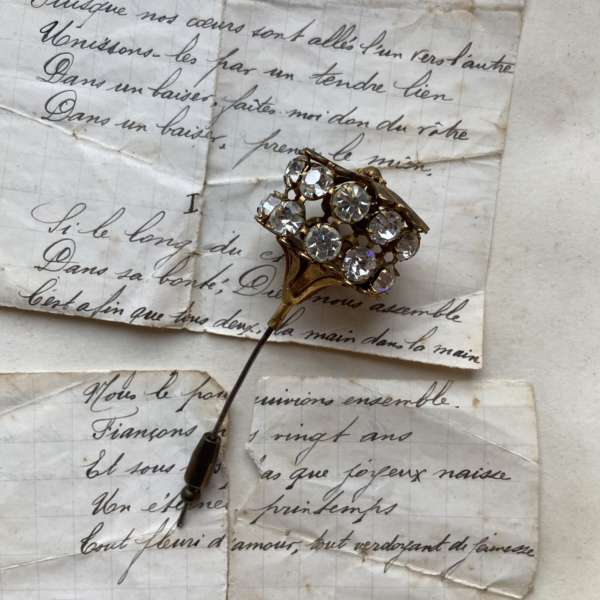 Puisque nos cœurs sont allés l'un vers l'autre
Unissons-les par un tendre lien
Dans un baiser, faites-moi don du vôtre
Dans un baiser, le mien,
I
Si le long du
Dans sa bonté, nous assemble
C'est afin que tous deux, la main dans la main
Nous le ensemble.
Fiançons vingt ans
Et sous que joyeux naisse
Un printemps
Tout fleuri d'amour, tout verdoyant de jeunesse